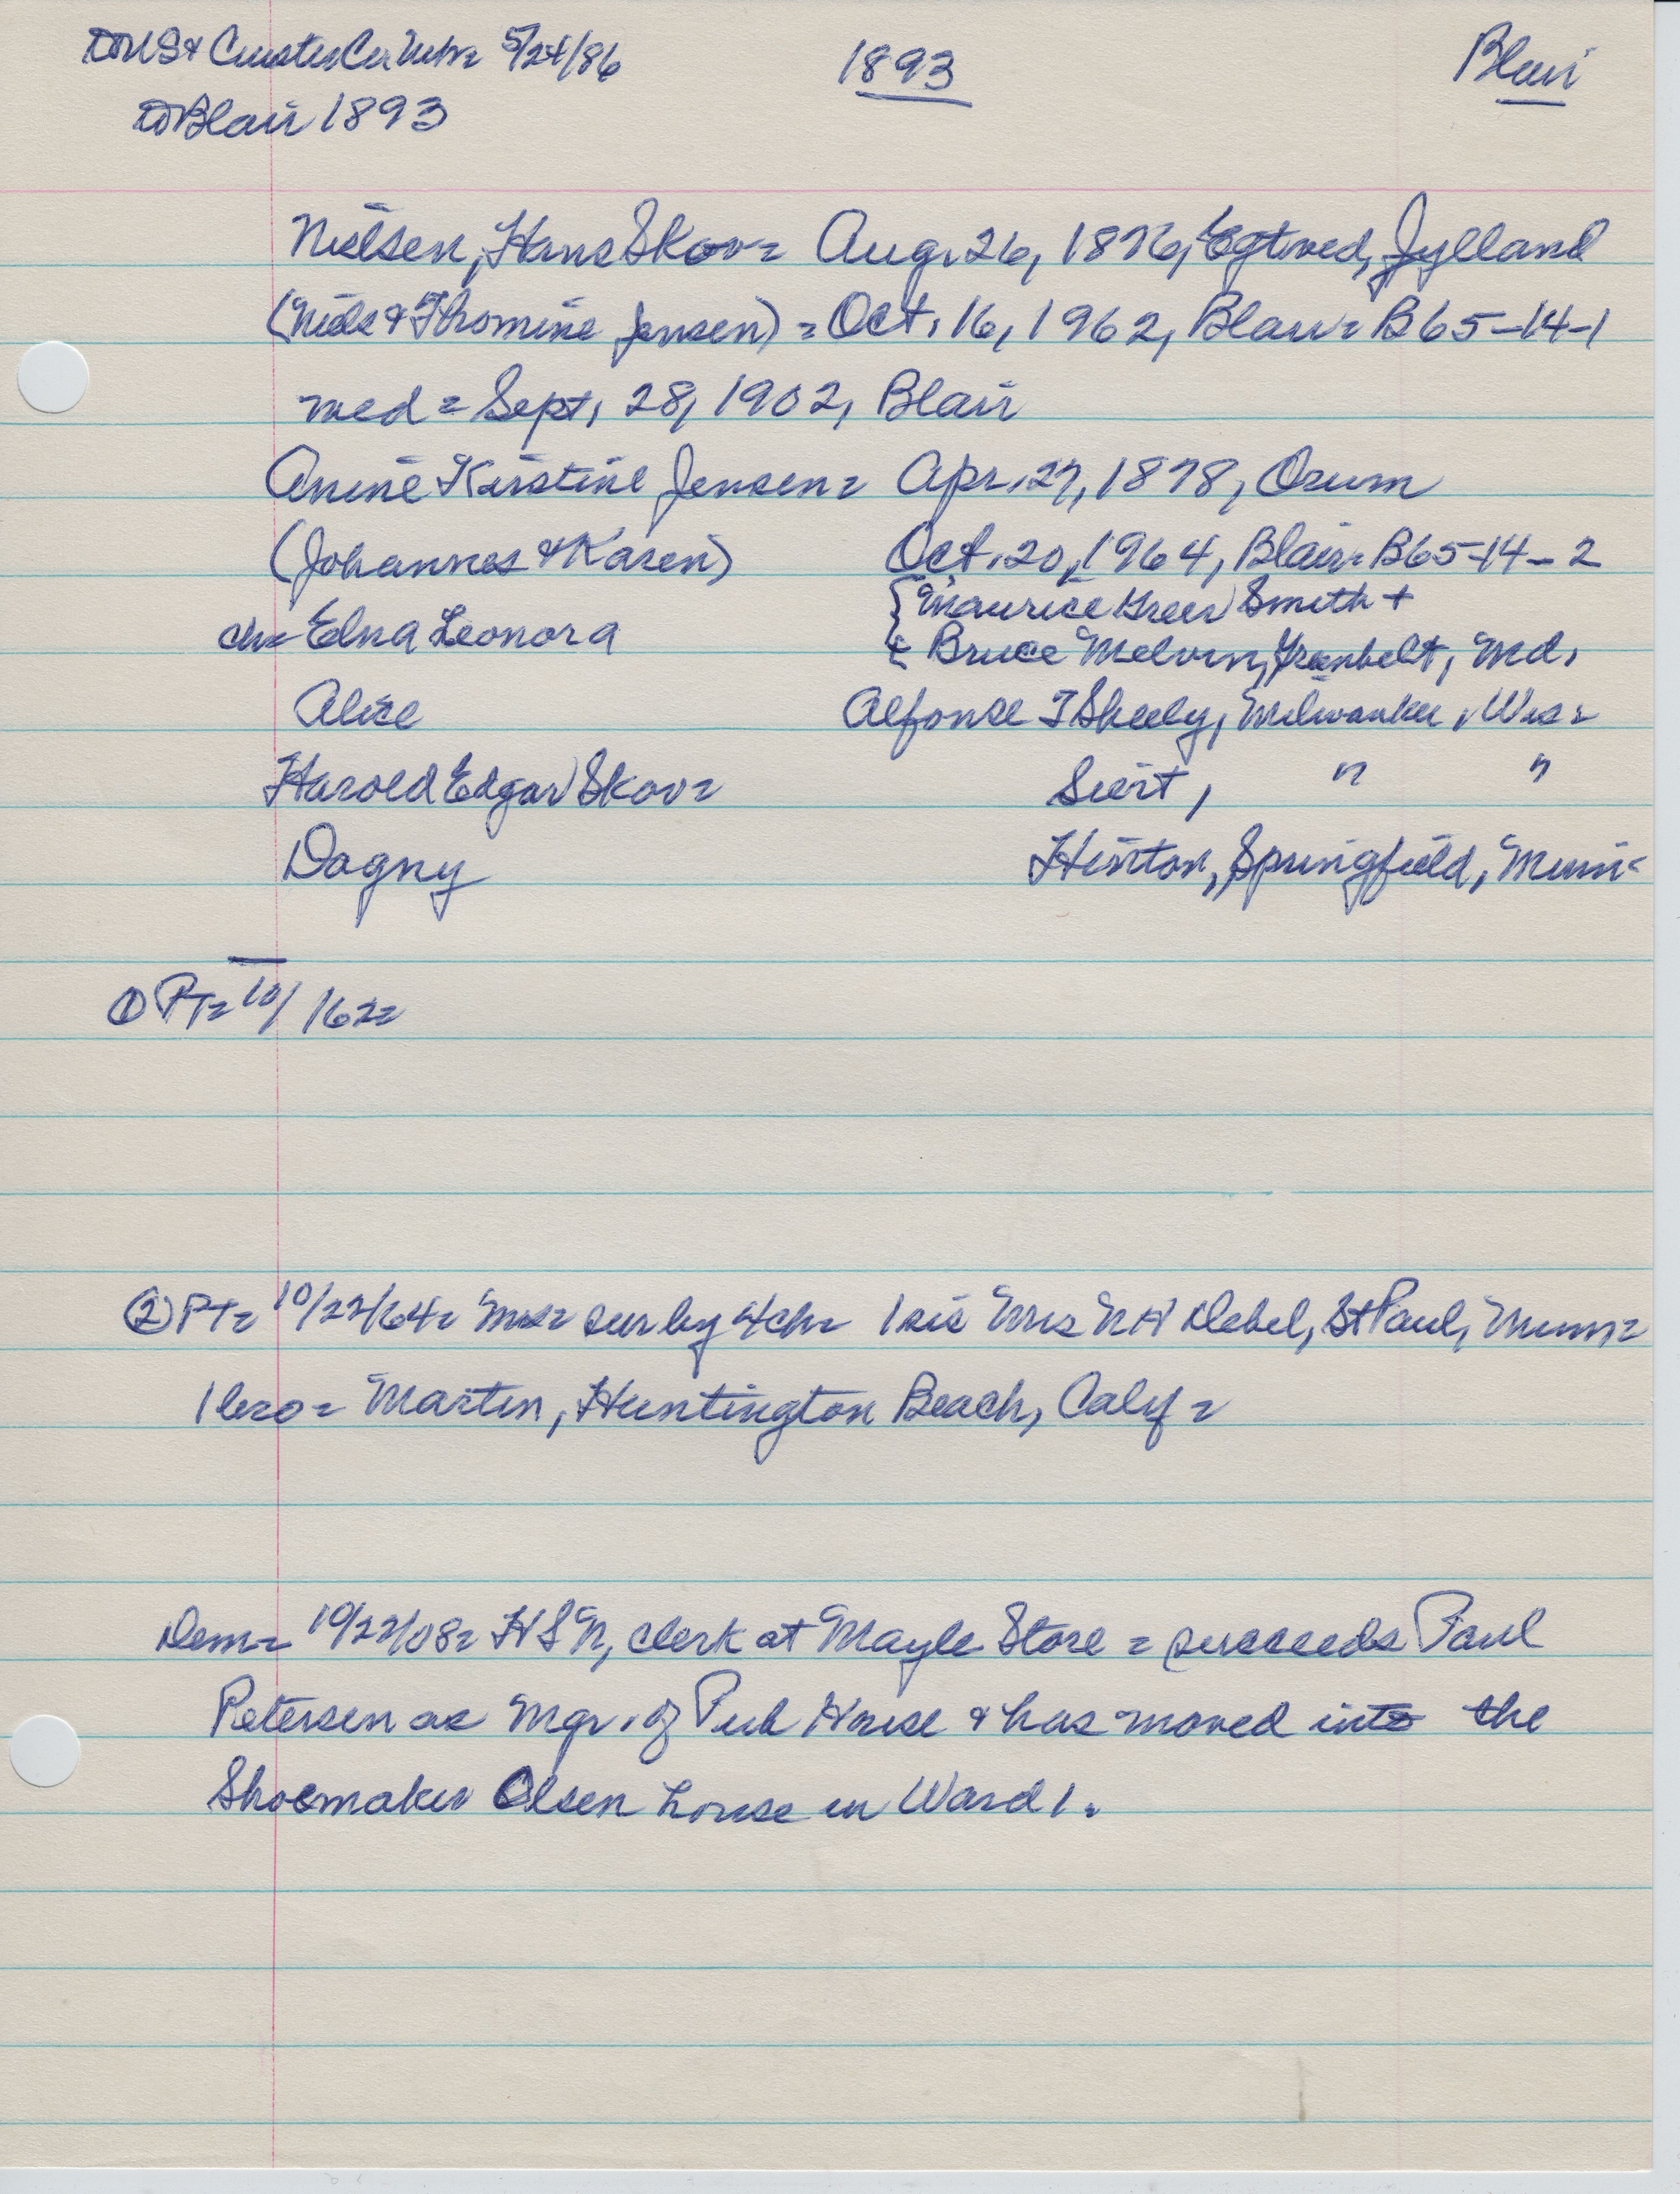 to US & Custer Co. Nebr= 5/24/86 1893 Blair
to Blair 1893
Nielsen, Hans Skov= Aug. 26, 1876, Egtved, Jylland
(Niels & Thomine Jensen) = Oct. 16, 1962, Blair= B65-14-1
med = Sept. 28, 1902, Blair
Anine Kirstine Jensen= Apr. 27, 1878, Orum
(Johannes & Karen) Oct. 20, 1964, Blair= B65-14-2
{Maurice Greer Smith +
ch= Edna Leonora & Bruce Melvin, Greenbelt, Md.
Alice Alfonse T Skeely, Milwaukee, Wis=
Harold Edgar Skov= Seert, " "
Dagny Hinton, Springfield, Minn=
① PT= 10/ 162=
② PT= 10/22/64= Mrs= sur by 4ch= 1 sis Mrs N H Debel, St Paul, Minn=
1 bro= Martin, Huntington Beach, Calif=
Dem= 10/22/08= HSN, clerk at Mayle Store = succeeds Paul
Petersen as Mgr. of Pub House & has moved into the
Shoemaker Olsen house in Ward 1.